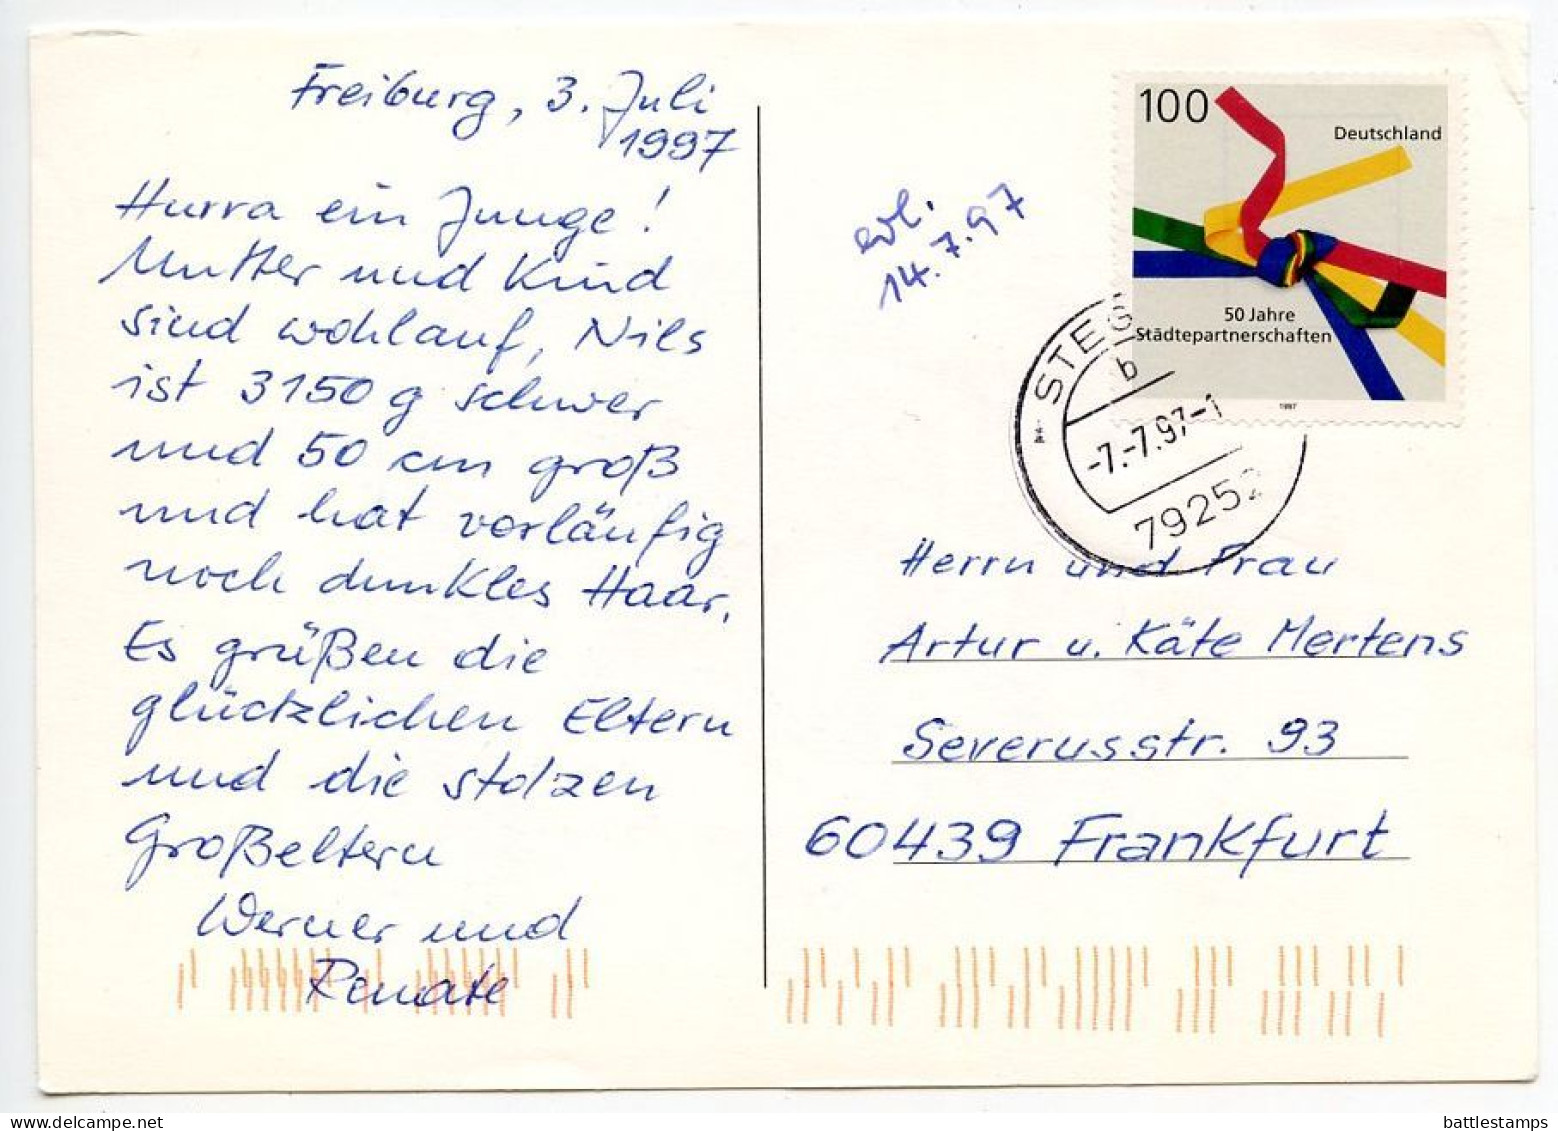 Freiburg, 3. Juli
1997
Hurra ein Junge!
Mutter und Kind
sind wohlauf, Nils
ist 3150 g schwer
und 50 cm groß
und hat vorläufig
noch dunkles Haar.
Es grüßen die
glücklichen Eltern
und die stolzen
Großeltern
Werner und
Renate
erl.
14.7.97
100
Deutschland
50 Jahre
Städtepartnerschaften
1997
STEG
b
-7.-7.97-1
79252
Herrn und Frau
Artur u. Käte Mertens
Severusstr. 93
60439 Frankfurt
www.delcampe.net
battlestamps